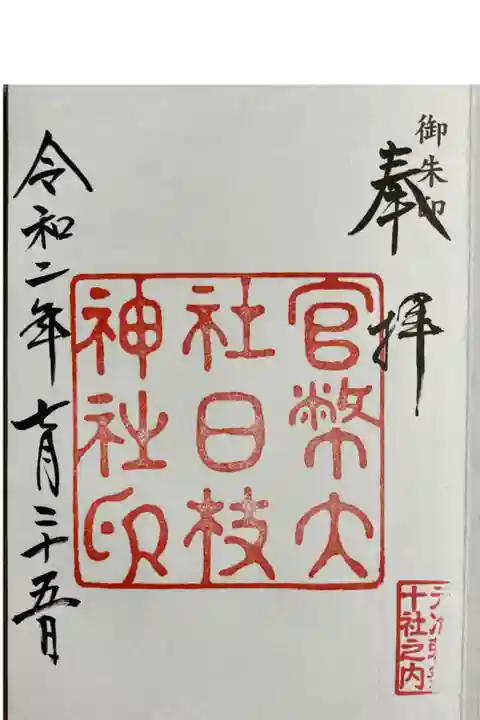 御朱印
奉拝
十社之内
官幣大
社日枝
神社印
令和二年七月二十五日